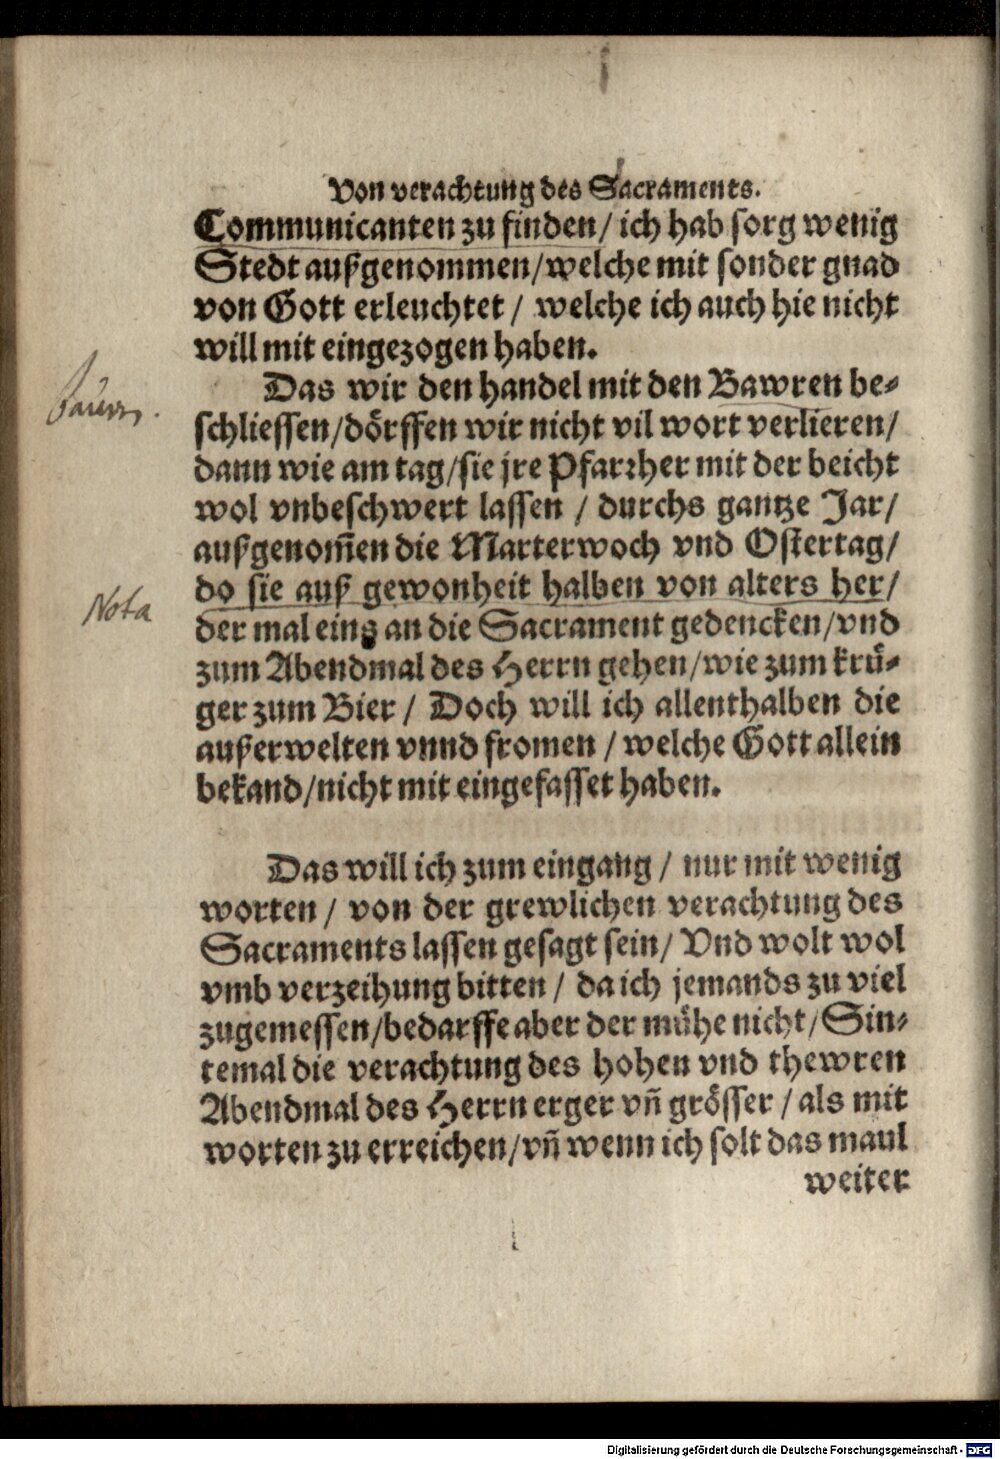 Von verachtung des Sacraments.
Communicanten zu finden/ ich hab sorg wenig
Stedt außgenommen/welche mit sonder gnad
von Gott erleuchtet / welche ich auch hie nicht
will mit eingezogen haben.
Das wir den handel mit den Bawren be-
schliessen/dörffen wir nicht vil wort verlieren/
dann wie am tag/sie jre Pfarrher mit der beicht
wol vnbeschwert lassen / durchs gantze Jar/
außgenom̄en die Marterwoch vnd Ostertag/
do sie auß gewonheit halben von alters her/
der mal eins an die Sacrament gedencken/vnd
zum Abendmal des Herrn gehen/wie zum krü-
ger zum Bier / Doch will ich allenthalben die
außerwelten vnnd fromen / welche Gott allein
bekand/nicht mit eingefasset haben.
Bauren.
Nota
Das will ich zum eingang / nur mit wenig
worten / von der grewlichen verachtung des
Sacraments lassen gesagt sein/ Vnd wolt wol
vmb verzeihung bitten / da ich jemands zu viel
zugemessen/bedarffe aber der mühe nicht/Sin-
temal die verachtung des hohen vnd thewren
Abendmal des Herrn erger vn̄ grösser / als mit
worten zu erreichen/vn̄ wenn ich solt das maul
weiter
Digitalisierung gefördert durch die Deutsche Forschungsgemeinschaft - DFG